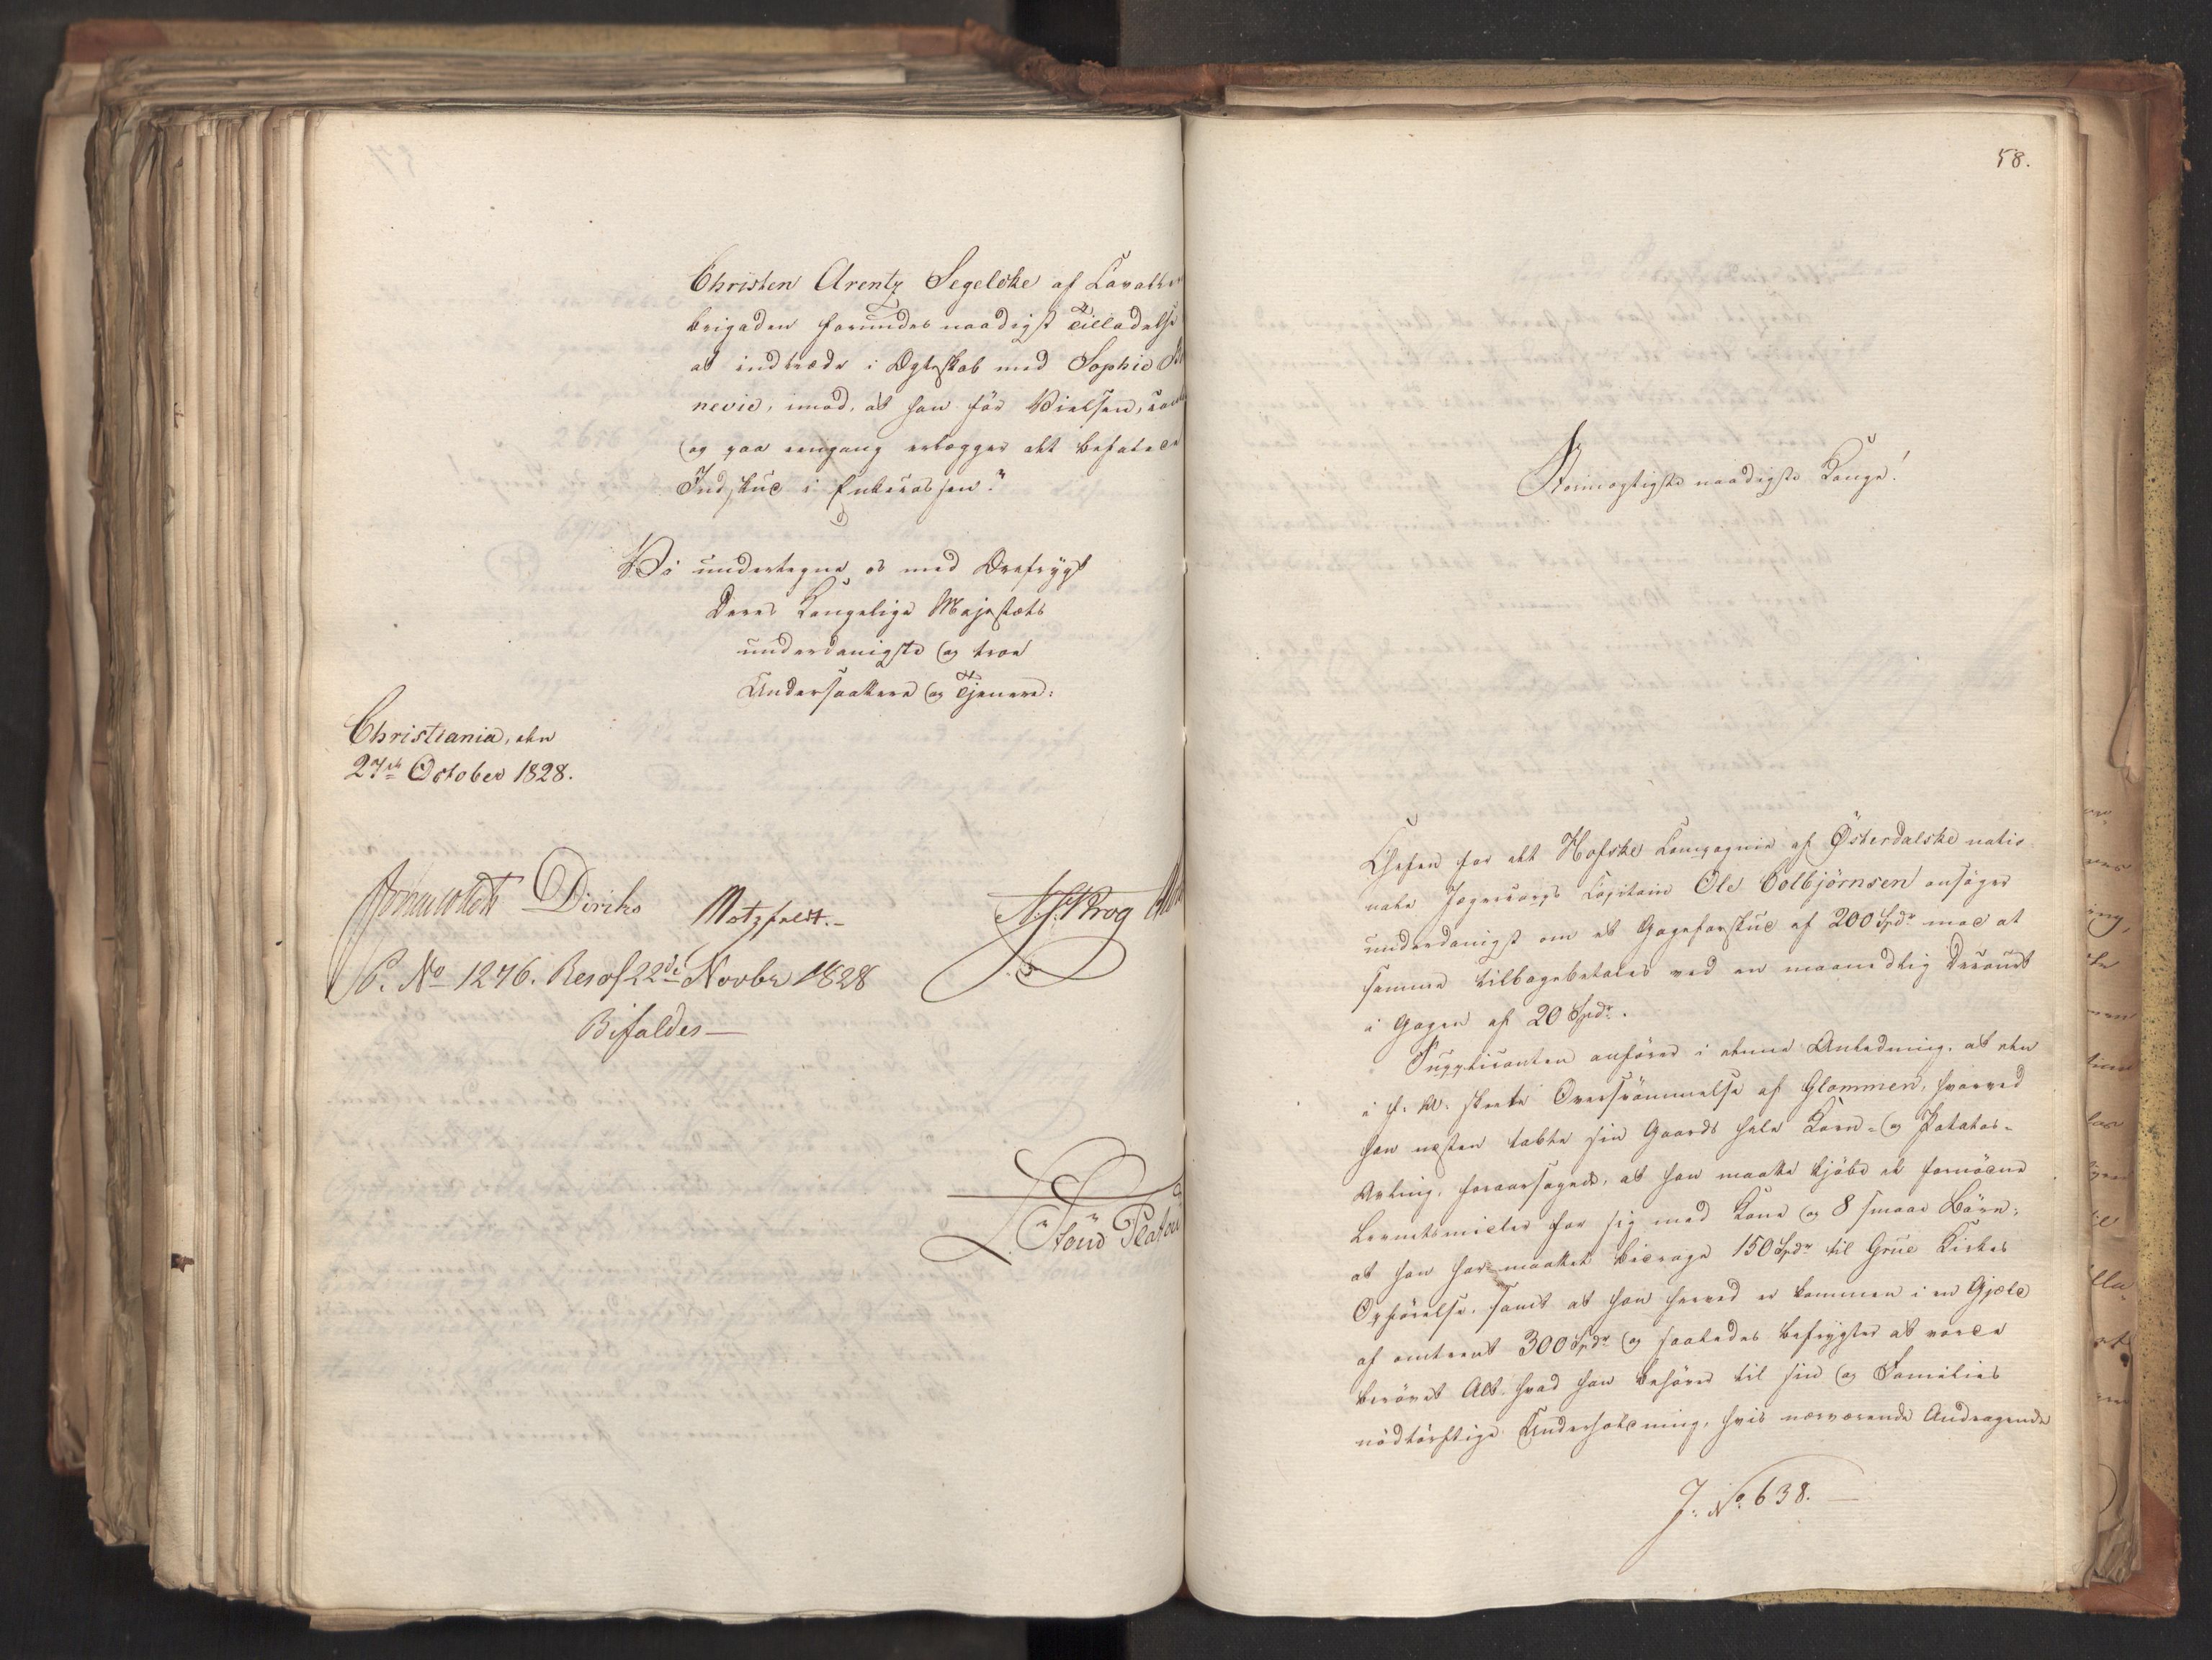 Christen Arentz Segelcke af Cavallerie
brigaden forundes naadigst Tilladelse
at indtræde i Ægteskab med Sophie
nevie, imod, at han för Vielsen,
og paa eengang erlægger det befalede
Indskud i Enkecassen."
Vi undertegne os med Ærefrygt
Deres Kongelige Majestæts
underdanigste og troe
Undersaattere og Tjenere:
Christiania, den
27de October 1828.
Diriks Motzfeldt.- Krog
P. No 1276. Resol 22de Novbr 1828
Bifaldes—
58.
Stormægtigste naadigste Konge!
Chefen for det Hofske Compagnie af Österdalske natio-
nale Jægercorps Capitain Ole Colbjörnsen ansöger
underdanigst om et Gageforskud af 200 Spdr mod at
samme tilbagebetales ved en maanedlig Decourt
i Gagen af 20 Spdr.
Supplicanten anförer i denne Anledning, at den
i f. A. skeete Oversvömmelse af Glommen, hvorved
han næsten tabte sin Gaards hele Korn- og Potatos-
Avling, foraarsagede, at han maatte kjöbe de fornödne
Levnetsmidler for sig med Kone og 8 smaae Börn;
at han har maattet bidrage 150 Spdr til Grue Kirkes
Opförelse, samt at han herved er kommen i en Gjæld
af omtrent 300 Spdr og saaledes befrygter at vorde
berövet Alt, hvad han behöver til sin og Families
nödtörftige Underholdning, hvis nærværende Andragende
J. No. 638.—